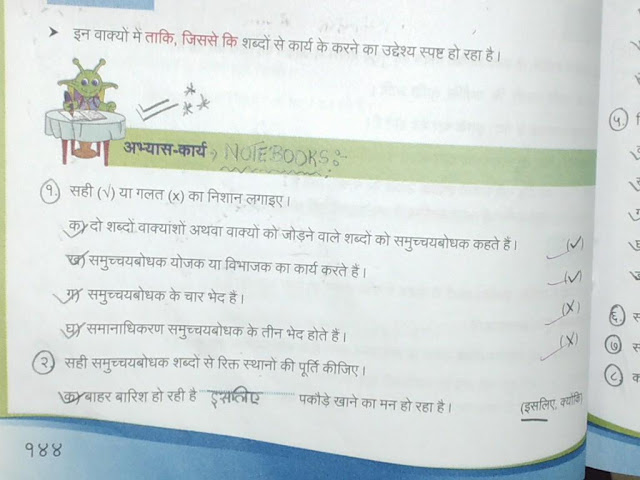 ➤ इन वाक्यों में ताकि, जिससे कि शब्दों से कार्य के करने का उद्देश्य स्पष्ट हो रहा है।
अभ्यास-कार्य, NOTEBOOKS:-
१. सही (√) या गलत (x) का निशान लगाइए।
क) दो शब्दों वाक्यांशों अथवा वाक्यो को जोड़ने वाले शब्दों को समुच्चयबोधक कहते हैं। (√)
ख) समुच्चयबोधक योजक या विभाजक का कार्य करते हैं। (√)
ग) समुच्चयबोधक के चार भेद है। (X)
घ) समानाधिकरण समुच्चयबोधक के तीन भेद होते हैं। (X)
२. सही समुच्चयबोधक शब्दों से रिक्त स्थानों की पूर्ति कीजिए।
क) बाहर बारिश हो रही है इसलिए पकौड़े खाने का मन हो रहा है। (इसलिए, क्योंकि)
१४४
५.
६.
७
८